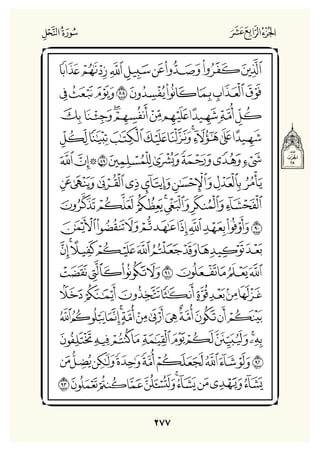 الجُزْءُ الرَّابِعَ عَشَرَ سُورَةُ النَّحْلِ
ٱلَّذِينَ كَفَرُوا۟ وَصَدُّوا۟ عَن سَبِيلِ ٱللَّهِ زِدْنَٰهُمْ عَذَابًا
فَوْقَ ٱلْعَذَابِ بِمَا كَانُوا۟ يُفْسِدُونَ ٨٨ وَيَوْمَ نَبْعَثُ فِى
كُلِّ أُمَّةٍ شَهِيدًا عَلَيْهِم مِّنْ أَنفُسِهِمْ ۖ وَجِئْنَا بِكَ
شَهِيدًا عَلَىٰ هَٰٓؤُلَآءِ ۚ وَنَزَّلْنَا عَلَيْكَ ٱلْكِتَٰبَ تِبْيَٰنًا لِّكُلِّ
شَىْءٍ وَهُدًى وَرَحْمَةً وَبُشْرَىٰ لِلْمُسْلِمِينَ ٨٩ ۞ إِنَّ ٱللَّهَ
يَأْمُرُ بِٱلْعَدْلِ وَٱلْإِحْسَٰنِ وَإِيتَآئِ ذِى ٱلْقُرْبَىٰ وَيَنْهَىٰ عَنِ
ٱلْفَحْشَآءِ وَٱلْمُنكَرِ وَٱلْبَغْىِ ۚ يَعِظُكُمْ لَعَلَّكُمْ تَذَكَّرُونَ
٩٠ وَأَوْفُوا۟ بِعَهْدِ ٱللَّهِ إِذَا عَٰهَدتُّمْ وَلَا تَنقُضُوا۟ ٱلْأَيْمَٰنَ
بَعْدَ تَوْكِيدِهَا وَقَدْ جَعَلْتُمُ ٱللَّهَ عَلَيْكُمْ كَفِيلًا ۚ إِنَّ
ٱللَّهَ يَعْلَمُ مَا تَفْعَلُونَ ٩١ وَلَا تَكُونُوا۟ كَٱلَّتِى نَقَضَتْ
غَزْلَهَا مِنۢ بَعْدِ قُوَّةٍ أَنكَٰثًا تَتَّخِذُونَ أَيْمَٰنَكُمْ دَخَلًۢا
بَيْنَكُمْ أَن تَكُونَ أُمَّةٌ هِىَ أَرْبَىٰ مِنْ أُمَّةٍ ۚ إِنَّمَا يَبْلُوكُمُ ٱللَّهُ
بِهِۦ ۚ وَلَيُبَيِّنَنَّ لَكُمْ يَوْمَ ٱلْقِيَٰمَةِ مَا كُنتُمْ فِيهِ تَخْتَلِفُونَ
٩٢ وَلَوْ شَآءَ ٱللَّهُ لَجَعَلَكُمْ أُمَّةً وَٰحِدَةً وَلَٰكِن يُضِلُّ مَن
يَشَآءُ وَيَهْدِى مَن يَشَآءُ ۚ وَلَتُسْـَٔلُنَّ عَمَّا كُنتُمْ تَعْمَلُونَ ٩٣
٢٧٧